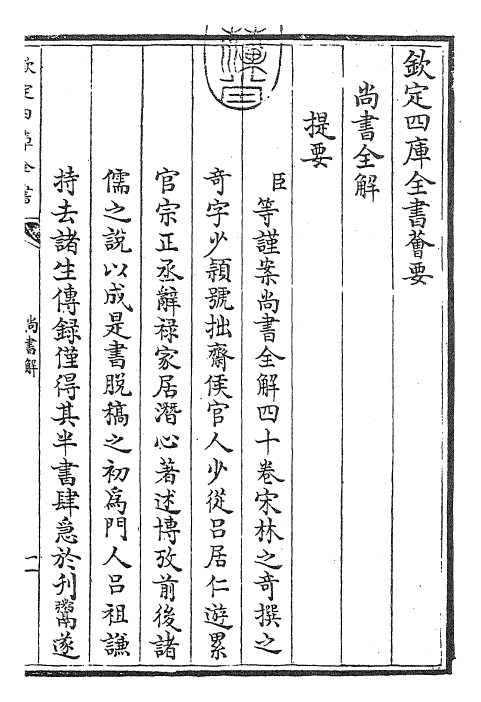 欽定四庫全書薈要
尚書全解
提要
臣等謹案尚書全解四十卷宋林之奇撰之
奇字少穎號拙齋侯官人少從呂居仁遊累
官宗正丞辭祿家居潛心著述博攷前後諸
儒之說以成是書脫稿之初為門人呂祖謙
持去諸生傳錄僅得其半書肆急於刋鬻遂
欽定四庫全書
尚書解
一